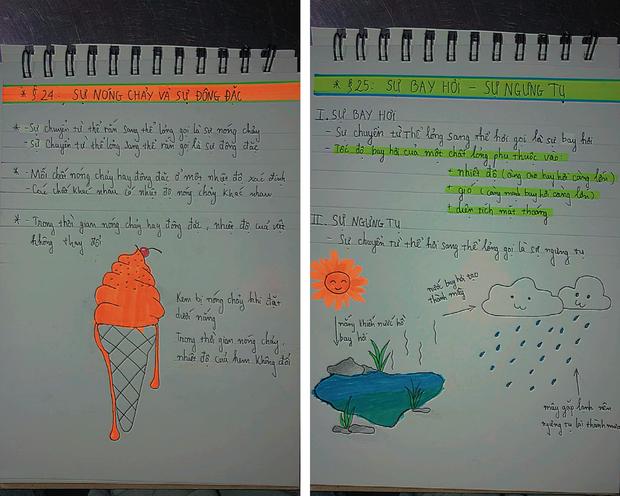 * § 24: SỰ NÓNG CHẢY VÀ SỰ ĐÔNG ĐẶC
* - Sự chuyển từ thể rắn sang thể lỏng gọi là sự nóng chảy
- Sự chuyển từ thể lỏng sang thể rắn gọi là sự đông đặc
* - Mỗi chất nóng chảy hay đông đặc ở một nhiệt độ xác định
- Các chất khác nhau có nhiệt độ nóng chảy khác nhau
* - Trong thời gian nóng chảy hay đông đặc, nhiệt độ của vật
không thay đổi
Kem bị nóng chảy khi đặt
dưới nắng
Trong thời gian nóng chảy,
nhiệt độ của kem không đổi
* § 25: SỰ BAY HƠI - SỰ NGƯNG TỤ
I. SỰ BAY HƠI
- Sự chuyển từ thể lỏng sang thể hơi gọi là sự bay hơi
Tốc độ bay hơi của một chất lỏng phụ thuộc vào:
+ nhiệt độ (càng cao bay hơi càng lớn)
+ gió (càng mạnh bay hơi càng lớn)
+ diện tích mặt thoáng
II. SỰ NGƯNG TỤ
- Sự chuyển từ thể hơi sang thể lỏng gọi là sự ngưng tụ
nước bay hơi tạo
thành mây
nắng khiến nước hồ
bay hơi
mây gặp lạnh nên
ngưng tụ lại thành mưa